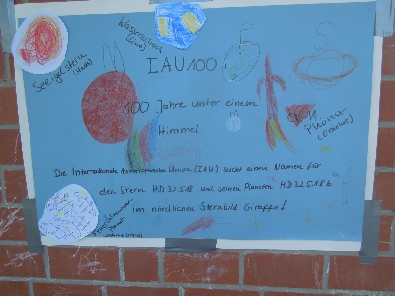 Wasserschein
Seeigelstern
IAU100
E
S
100 Jahre unter einem
Himmel
Die Internationale Astronomische Union (IAU) sucht einen Namen für
den Stern HD 32518 und seinen Planeten HD 32518 b
im nördlichen Sternbild Giraffe!